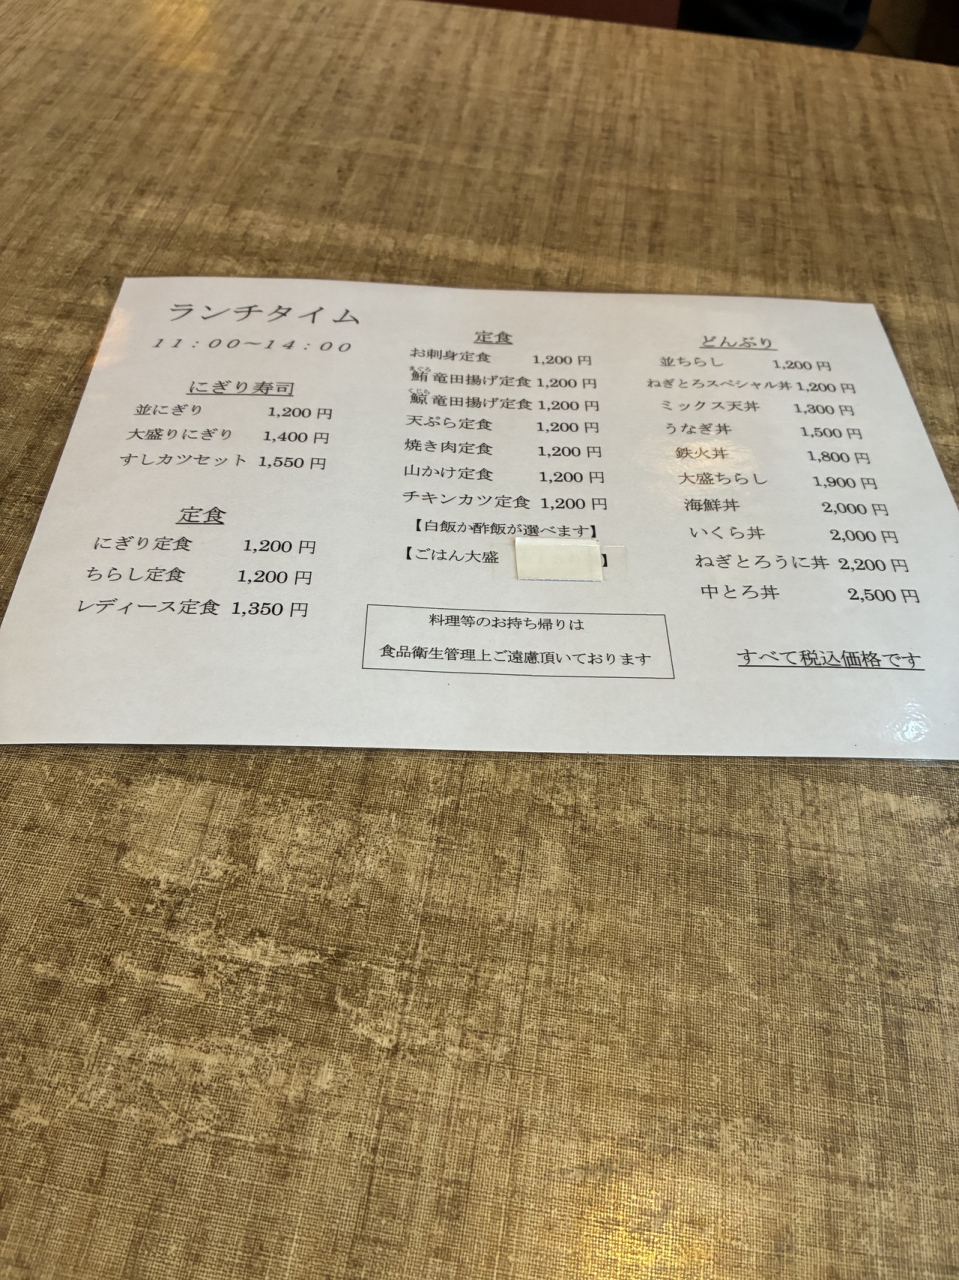 ランチタイム
11:00~14:00
にぎり寿司
並にぎり 1,200 円
大盛りにぎり 1,400 円
すしカツセット 1,550 円
定食
にぎり定食 1,200 円
ちらし定食 1,200 円
レディース定食 1,350 円
定食
お刺身定食 1,200 円
まぐろ
鮪竜田揚げ定食 1,200 円
くじら
鯨竜田揚げ定食 1,200 円
天ぷら定食 1,200 円
焼き肉定食 1,200 円
山かけ定食 1,200 円
チキンカツ定食 1,200 円
【白飯か酢飯が選べます】
【ごはん大盛 】
料理等のお持ち帰りは
食品衛生管理上ご遠慮頂いております
どんぶり
並ちらし 1,200 円
ねぎとろスペシャル丼 1,200 円
ミックス天丼 1,300 円
うなぎ丼 1,500 円
鉄火丼 1,800 円
大盛ちらし 1,900 円
海鮮丼 2,000 円
いくら丼 2,000 円
ねぎとろうに丼 2,200 円
中とろ丼 2,500 円
すべて税込価格です